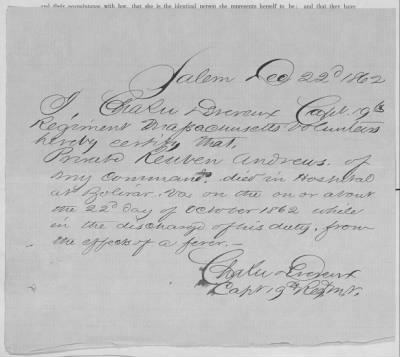 and their acquaintance with her, that she is the identical person she represents herself to be; and that they have
Salem Dec 22d 1862
I, Capt. 19th
Regiment Massachusetts Volunteers
hereby certify that,
Private Reuben Andrews. of
my command. died in Hospital
at Bolivar. Va on the on or about
the 22d day of October 1862 while
in the discharge of his duty, from
the effects of a fever.—
Capt 19th Regt M.V.